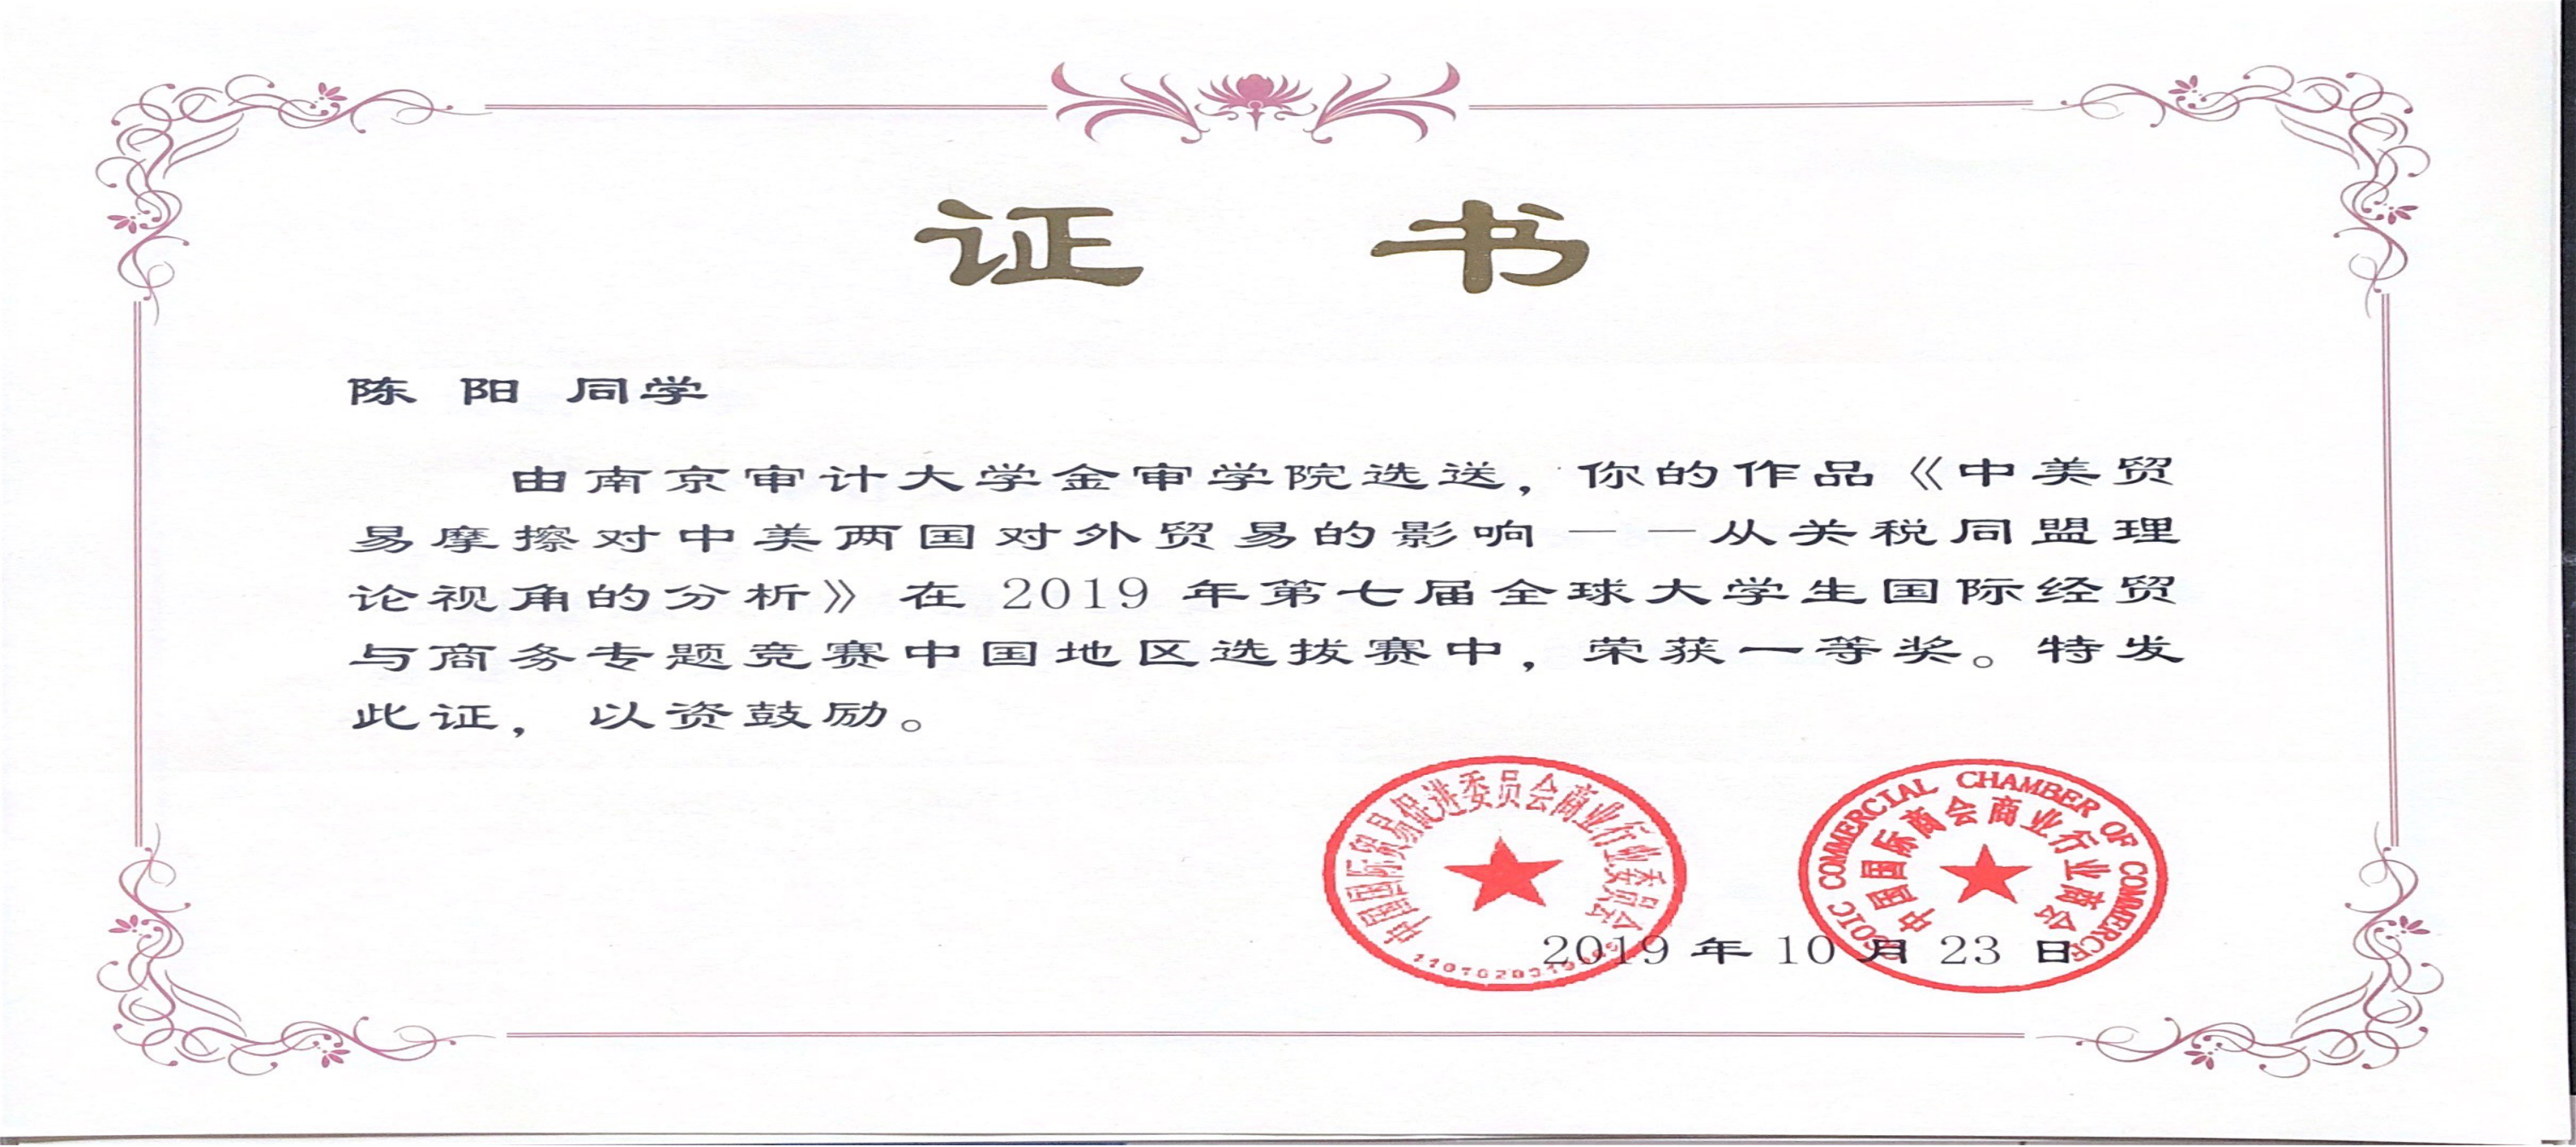 证 书
陈 阳 同学
由南京审计大学金审学院选送，你的作品《中美贸
易摩擦对中美两国对外贸易的影响——从关税同盟理
论视角的分析》在 2019 年第七届全球大学生国际经贸
与商务专题竞赛中国地区选拔赛中，荣获一等奖。特发
此证，以资鼓励。
中国国际贸易促进委员会商业行业委员会
CCOIC COMMERCIAL CHAMBER OF COMMERCE
中国国际商会商业行业商会
2019 年 10 月 23 日